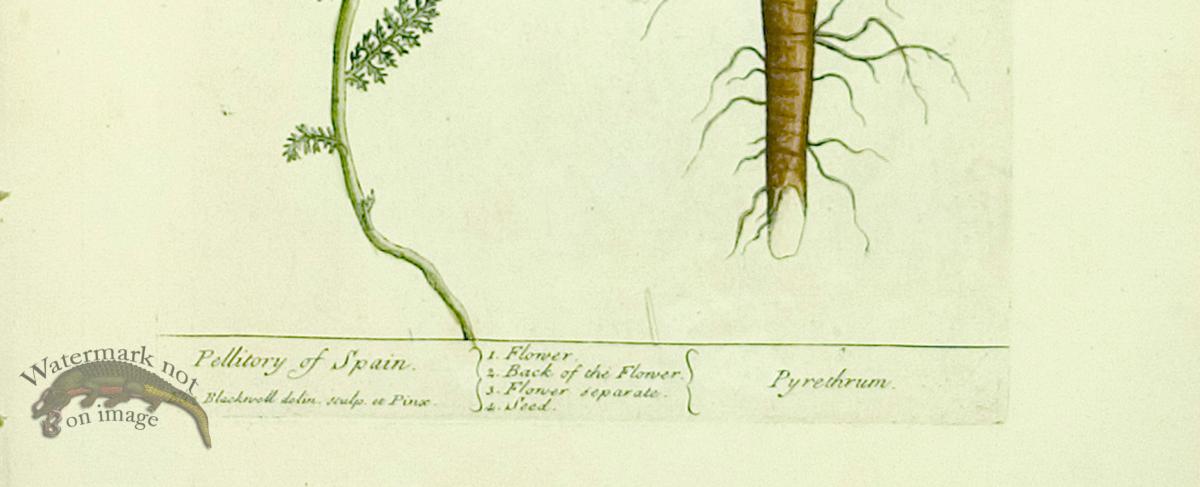 Pellitory of Spain.
Blackwell delin. sculp. et Pinx.
1. Flower.
2. Back of the Flower.
3. Flower separate.
4. Seed.
Pyrethrum.
Watermark not
on image